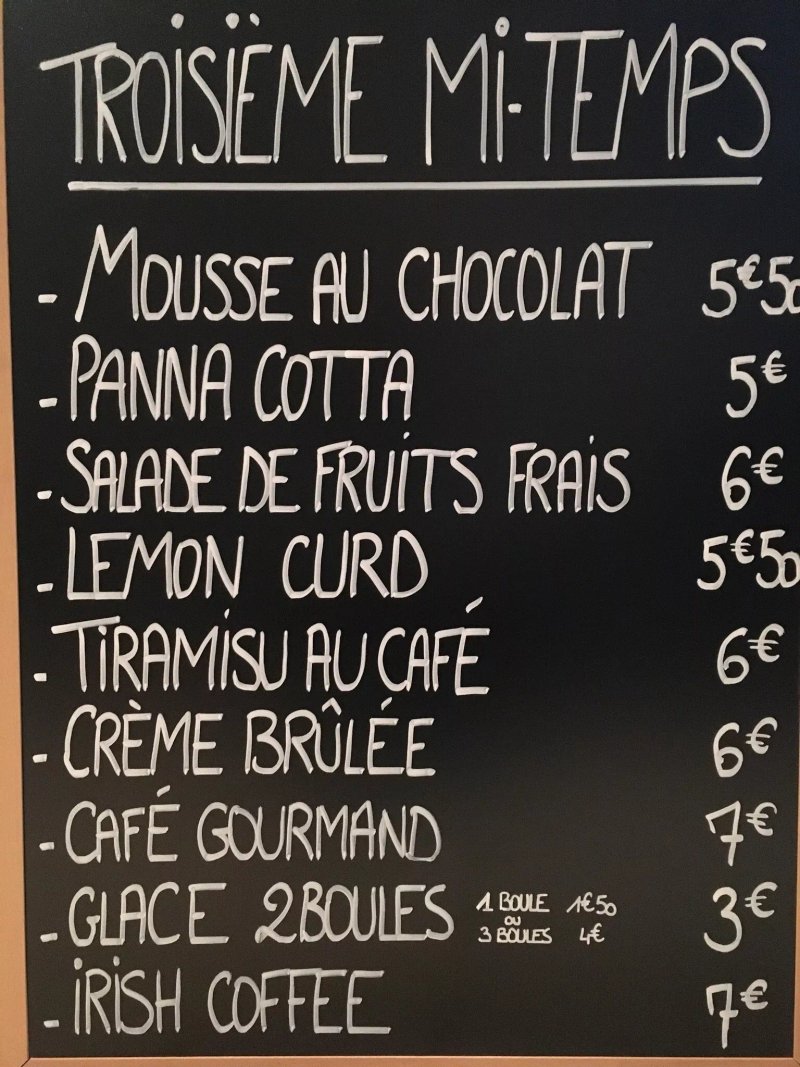 TROISIËME MI-TEMPS
- MOUSSE AU CHOCOLAT 5€50
- PANNA COTTA 5€
- SALADE DE FRUITS FRAIS 6€
- LEMON CURD 5€50
- TIRAMISU AU CAFÉ 6€
- CRÈME BRÛLÉE 6€
- CAFÉ GOURMAND 7€
- GLACE 2 BOULES 3€
1 BOULE 1€50
OU
3 BOULES 4€
- IRISH COFFEE 7€